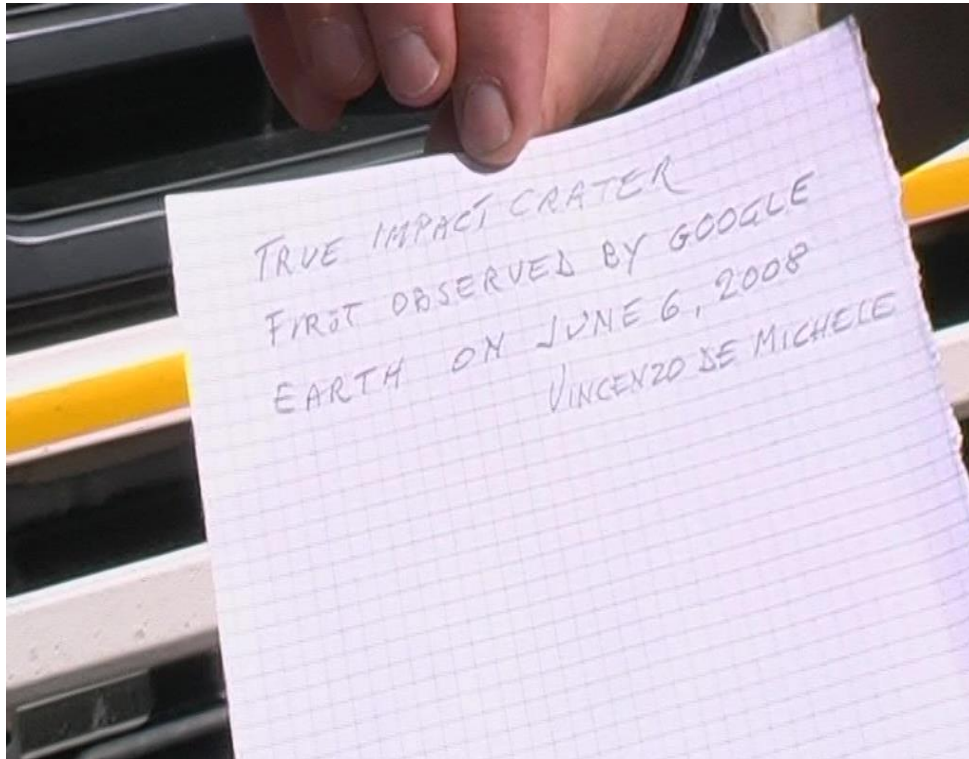 TRUE IMPACT CRATER
FIRST OBSERVED BY GOOGLE
EARTH ON JUNE 6, 2008
VINCENZO DE MICHELE